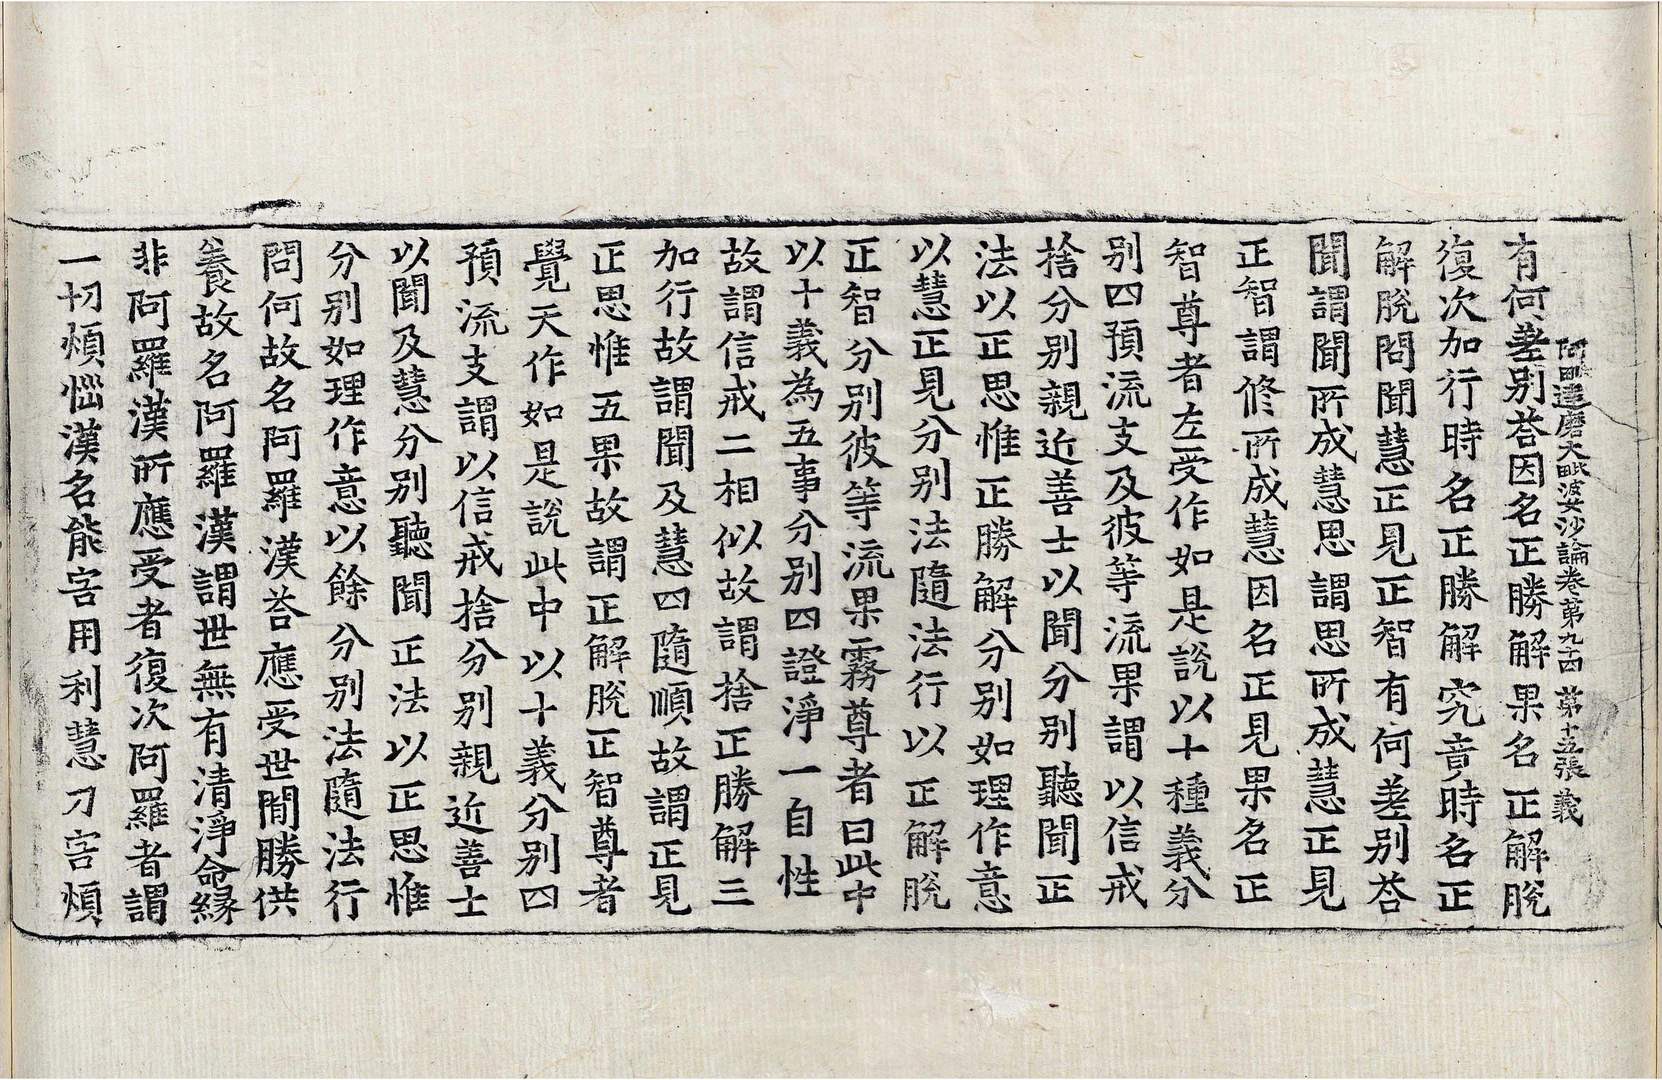 阿毗達磨大毗婆沙論卷第九十四 第十五張 義
有何差别荅因名正勝解果名正解脫
復次加行時名正勝解究竟時名正
解脫問聞慧正見正智有何差别荅
聞謂聞所成慧思謂思所成慧正見
正智謂修所成慧因名正見果名正
智尊者左受作如是說以十種義分
别四預流支及彼等流果謂以信戒
捨分别親近善士以聞分别聽聞正
法以正思惟正勝解分别如理作意
以慧正見分别法隨法行以正解脫
正智分别彼等流果霧尊者曰此中
以十義為五事分别四證淨一自性
故謂信戒二相似故謂捨正勝解三
加行故謂聞及慧四隨順故謂正見
正思惟五果故謂正解脫正智尊者
覺天作如是說此中以十義分别四
預流支謂以信戒捨分别親近善士
以聞及慧分别聽聞正法以正思惟
分别如理作意以餘分别法隨法行
問何故名阿羅漢荅應受世間勝供
養故名阿羅漢謂世無有清淨命緣
非阿羅漢所應受者復次阿羅者謂
一切煩惱漢名能害用利慧刀害煩